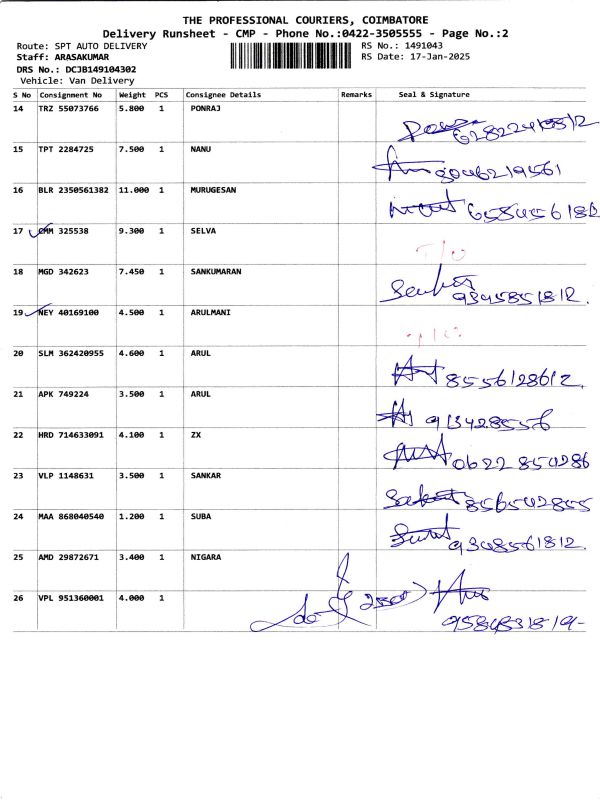 THE PROFESSIONAL COURIERS, COIMBATORE
Delivery Runsheet - CMP - Phone No.:0422-3505555 - Page No.:2
Route: SPT AUTO DELIVERY RS No.: 1491043
Staff: ARASAKUMAR RS Date: 17-Jan-2025
DRS No.: DCJB149104302
Vehicle: Van Delivery
S No Consignment No Weight PCS Consignee Details Remarks Seal & Signature
14 TRZ 55073766 5.800 1 PONRAJ
15 TPT 2284725 7.500 1 NANU
8046219561
16 BLR 2350561382 11.000 1 MURUGESAN
17 CMM 325538 9.300 1 SELVA
T/O
18 MGD 342623 7.450 1 SANKUMARAN
9345851812.
19 NEY 40169100 4.500 1 ARULMANI
20 SLM 362420955 4.600 1 ARUL
8556128612.
21 APK 749224 3.500 1 ARUL
913428556
22 HRD 714633091 4.100 1 ZX
23 VLP 1148631 3.500 1 SANKAR
856542855
24 MAA 868040540 1.200 1 SUBA
9348561812.
25 AMD 29872671 3.400 1 NIGARA
26 VPL 951360001 4.000 1